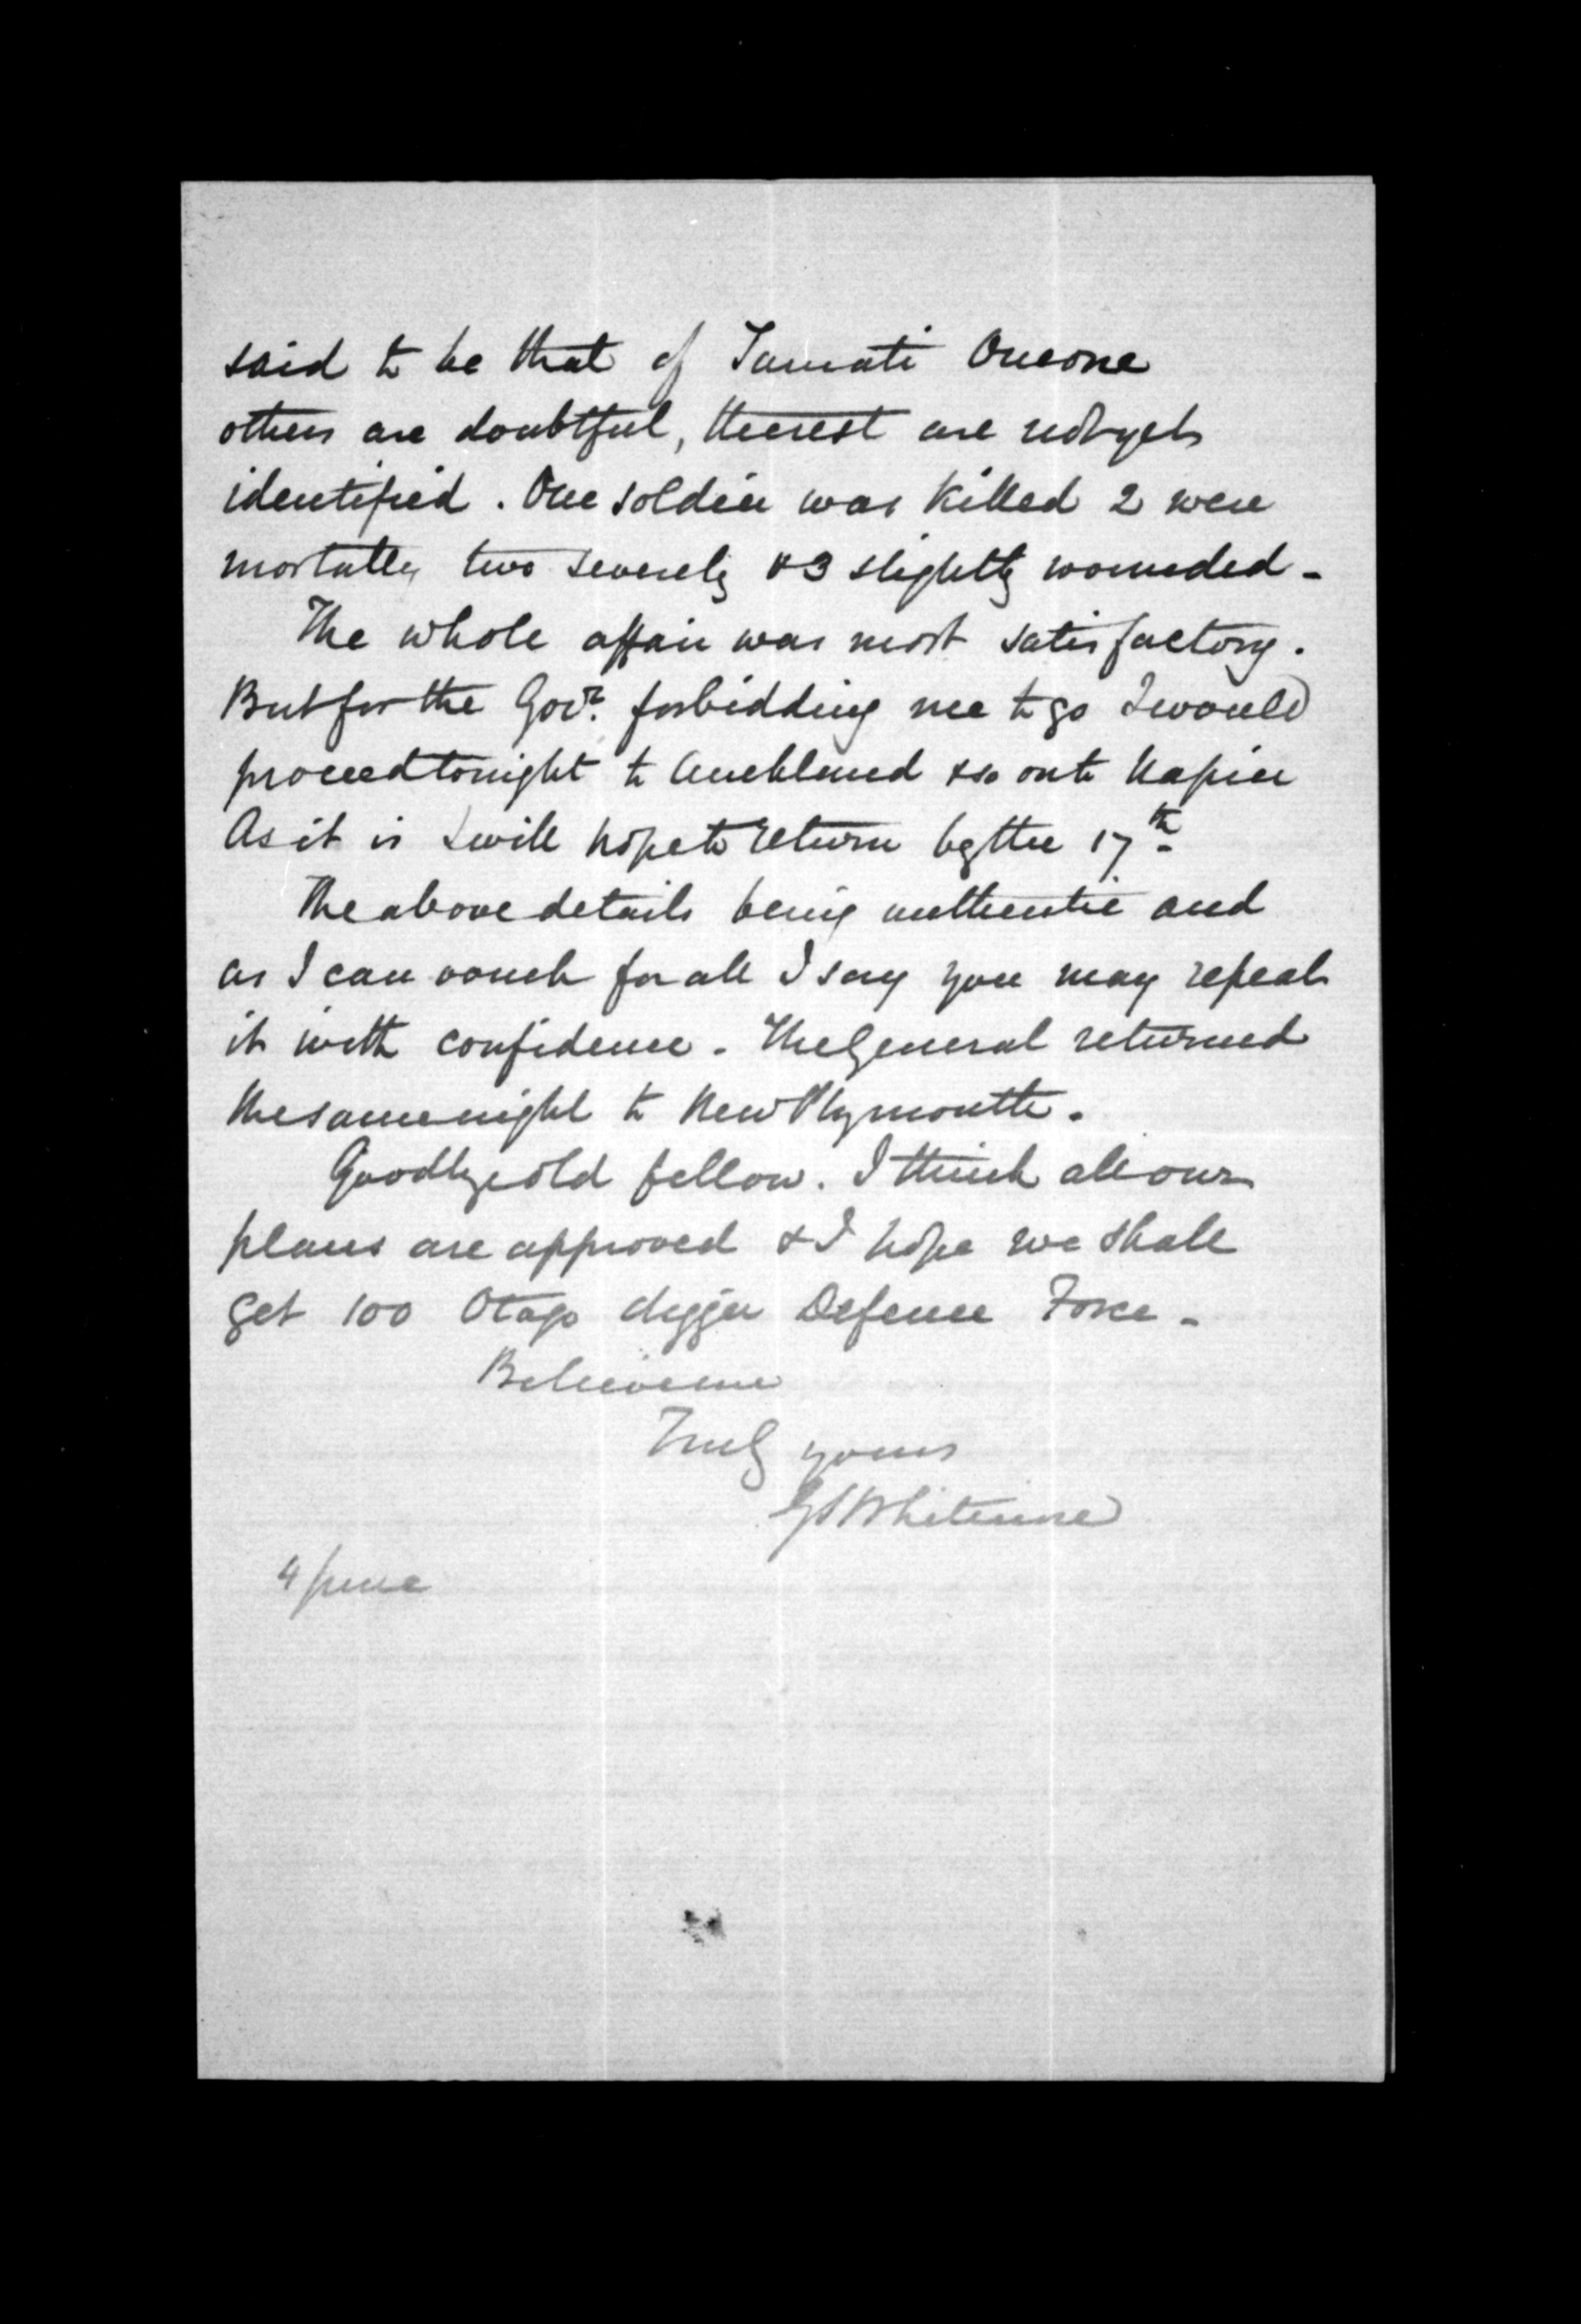 said to be that of Tamati Oneone
others are doubtful, the rest are not yet
identified. One soldier was killed 2 were
mortally two severely & 3 slightly wounded -
The whole affair was most satisfactory.
But for the Govr. forbidding me to go I would
proceed tonight to Auckland & so on to Napier
As it is I will hope to return by the 17th-
The above details being authentic and
as I can vouch for all I say you may repeat
it with confidence. The General returned
the same night to New Plymouth.
Goodbye old fellow. I think all our
plans are approved & I hope we shall
get 100 Otago digger Defence Force -
Believe me
Truly yours
GSWhitmore
4 June